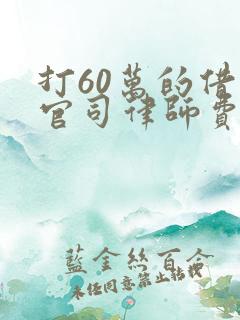 打60萬的借
官司律師費
藍金絲百合
未任同意禁止转载